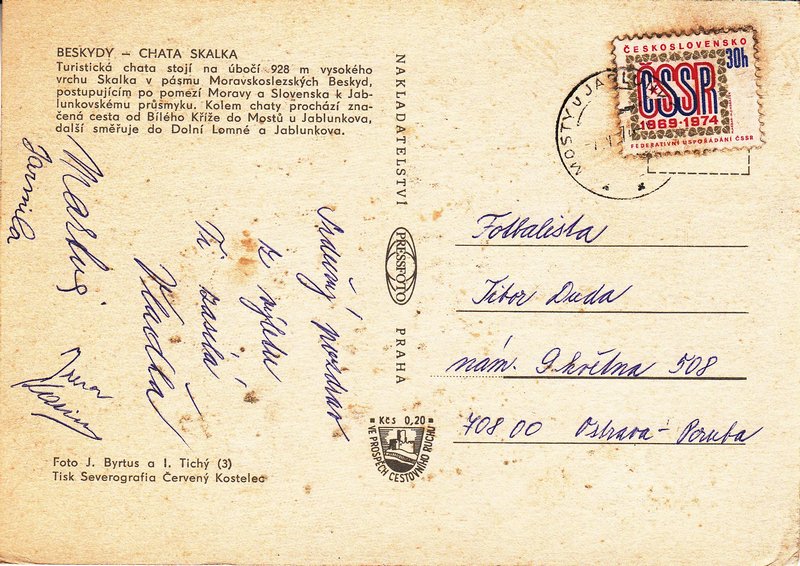 BESKYDY – CHATA SKALKA
Turistická chata stojí na úbočí 928 m vysokého
vrchu Skalka v pásmu Moravskoslezských Beskyd,
postupujícím po pomezí Moravy a Slovenska k Jab-
lunkovskému průsmyku. Kolem chaty prochází zna-
čená cesta od Bílého Kříže do Mostů u Jablunkova,
další směřuje do Dolní Lomné a Jablunkova.
Srdečný pozdrav
z výletu
Ti zasílá
Vladka
Martus
Jarmila
Foto J. Byrtus a I. Tichý (3)
Tisk Severografia Červený Kostelec
NAKLADATELSTVÍ
PRESSFOTO
PRAHA
Kčs 0,20
VE PROSPĚCH CESTOVNÍHO RUCHU
ČESKOSLOVENSKO
30h
ČSSR
1969-1974
FEDERATIVNÍ USPOŘÁDÁNÍ ČSSR
MOSTY U
Fotbalista
Tibor Duda
nám. 9 května 508
708 00 Ostrava-Poruba